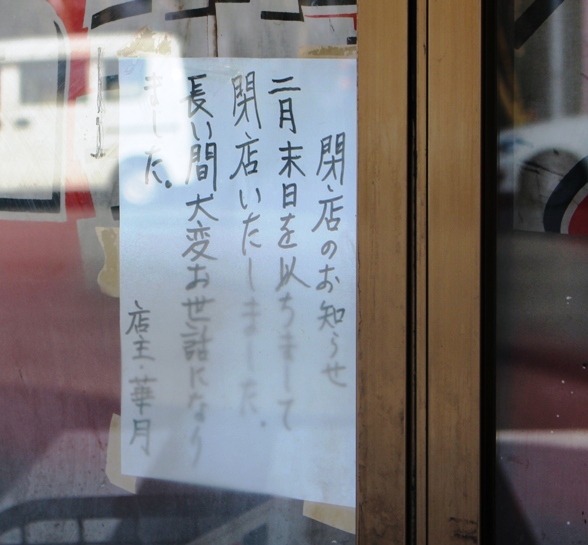 閉店のお知らせ
二月末日を以ちまして
閉店いたしました。
長い間大変お世話になり
ました。
店主・華月